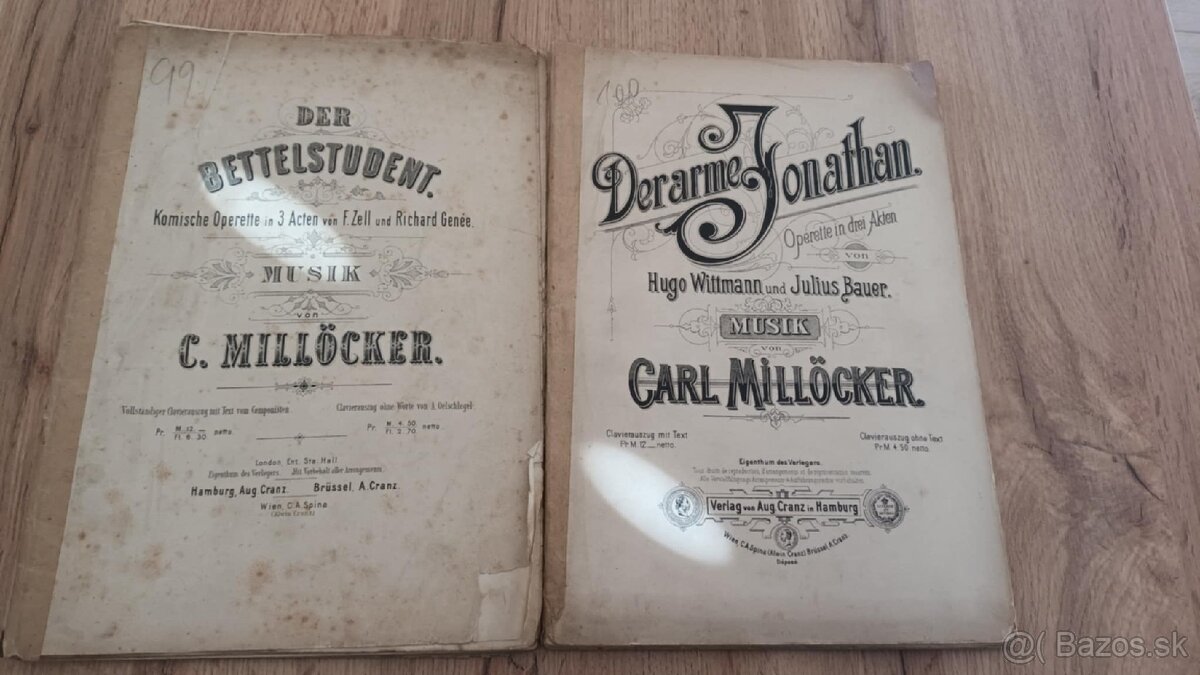 99
DER
BETTELSTUDENT.
Komische Operette in 3 Acten von F. Zell und Richard Genée.
MUSIK
von
C. MILLÖCKER.
Vollständiger Clavierauszug mit Text vom Componisten.
Pr. M. 12.— netto.
Fl. 6. 30
Clavierauszug ohne Worte von A. Oelschlegel.
Pr. M. 4. 50. netto.
Fl. 2. 70.
London, Ent. Sta. Hall.
Eigenthum des Verlegers. Mit Vorbehalt aller Arrangements.
Hamburg, Aug Cranz. Brüssel, A. Cranz.
Wien, C. A. Spina
(Alwin Cranz)
100
Der arme Jonathan.
Operette in drei Akten
von
Hugo Wittmann und Julius Bauer.
MUSIK
von
CARL MILLÖCKER.
Clavierauszug mit Text
Pr M. 12 _ netto.
Clavierauszug ohne Text
Pr. M. 4 50 netto.
Eigenthum des Verlegers.
Tous droits de reproduction, d'arrangements et de représentation réservés.
Verlag von Aug Cranz in Hamburg
Wien, C.A. Spina (Alwin Cranz) Brüssel, A. Cranz.
Déposé
@( Bazos.sk